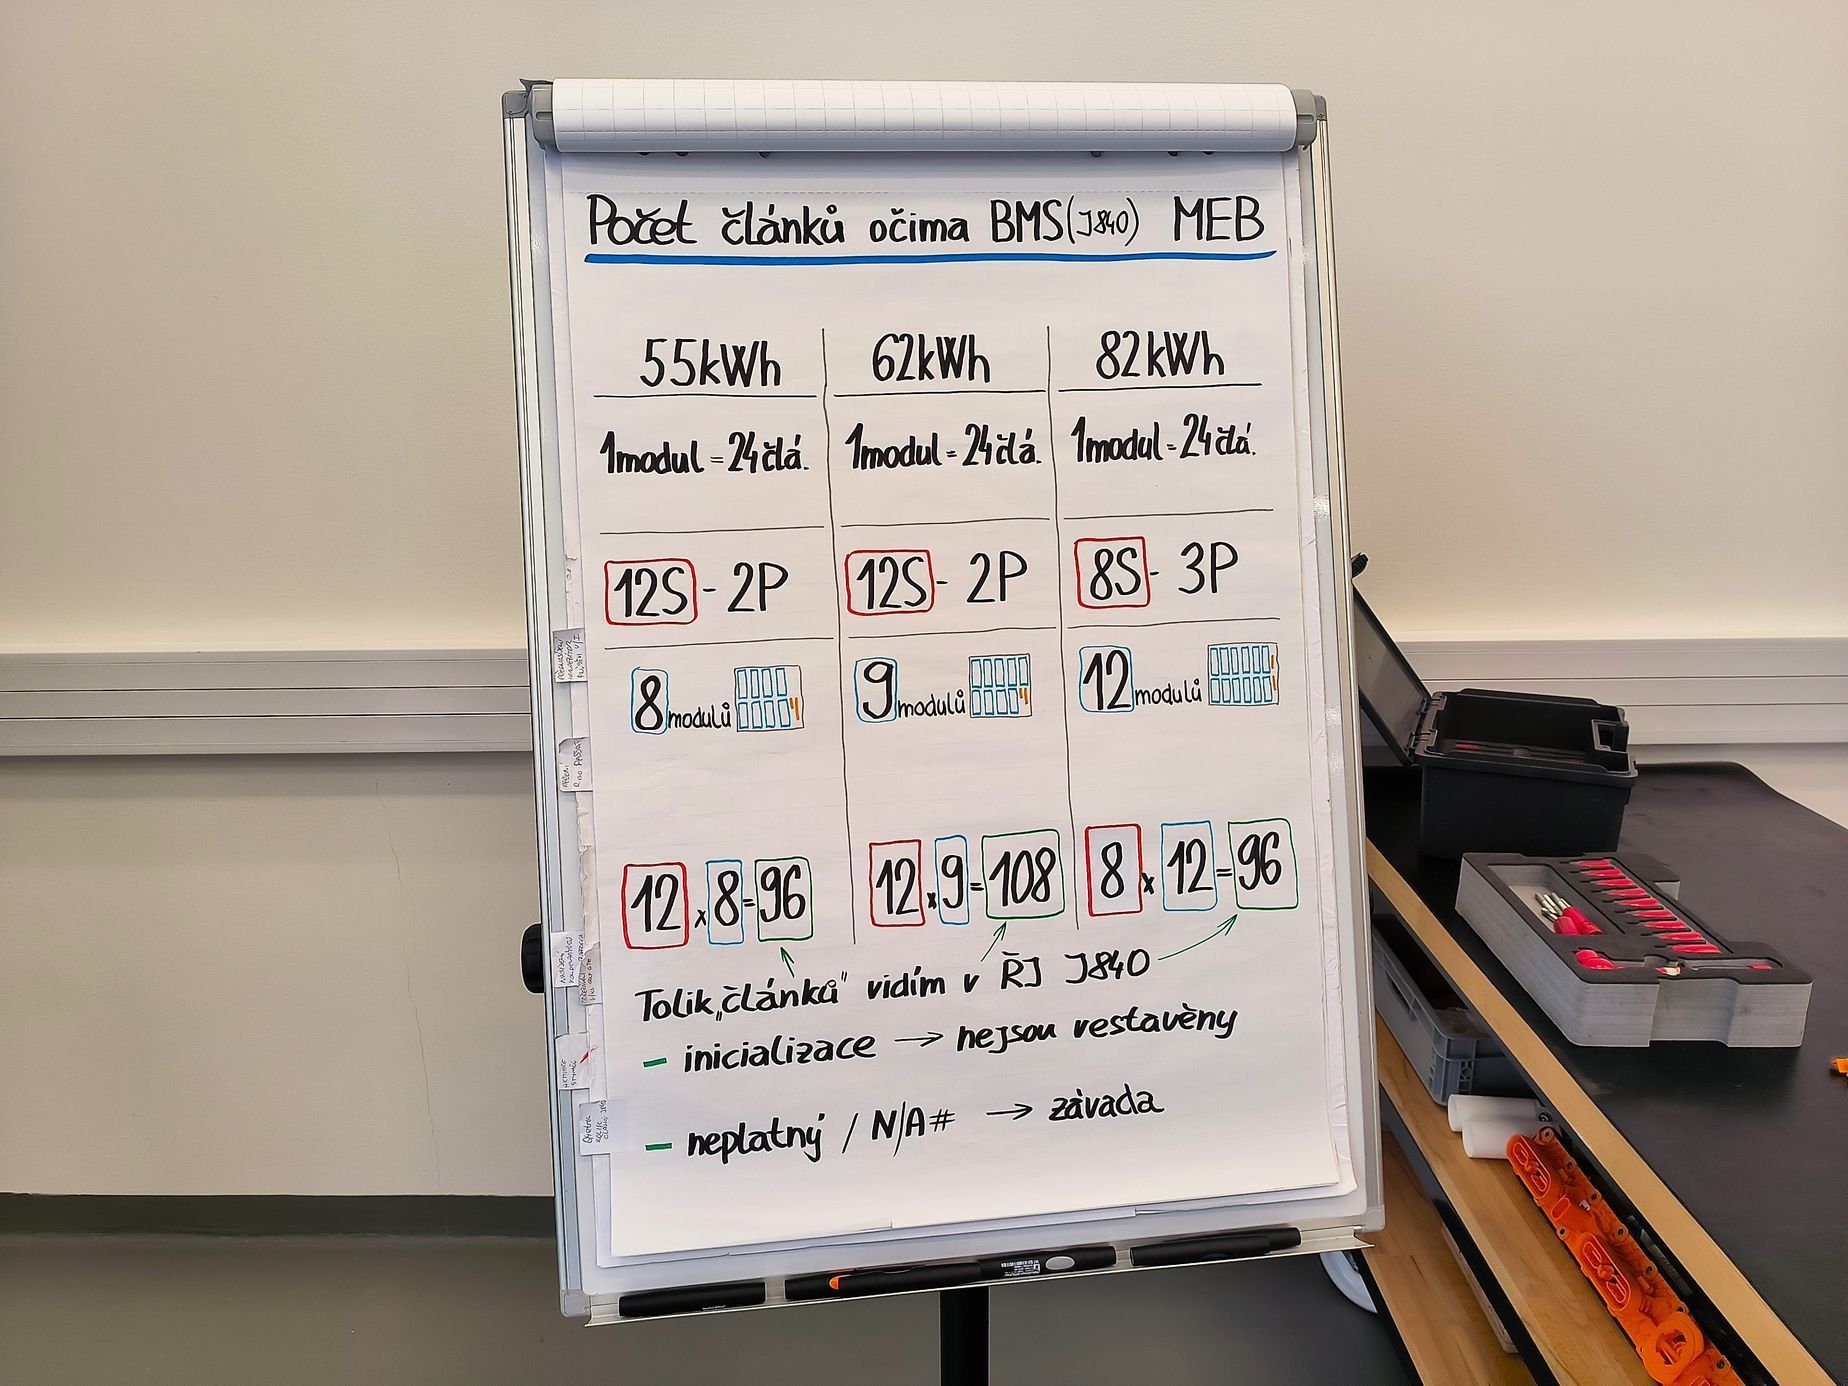 Počet článků očima BMS(J840) MEB
55kWh 62kWh 82kWh
1modul=24člá. 1modul=24člá. 1modul=24člá.
12S - 2P 12S - 2P 8S - 3P
8 modulů 9 modulů 12 modulů
12 x 8 = 96 12 x 9 = 108 8 x 12 = 96
Tolik „článků" vidím v ŘJ J840
- inicializace → nejsou vestavěny
- neplatný / N/A# → závada